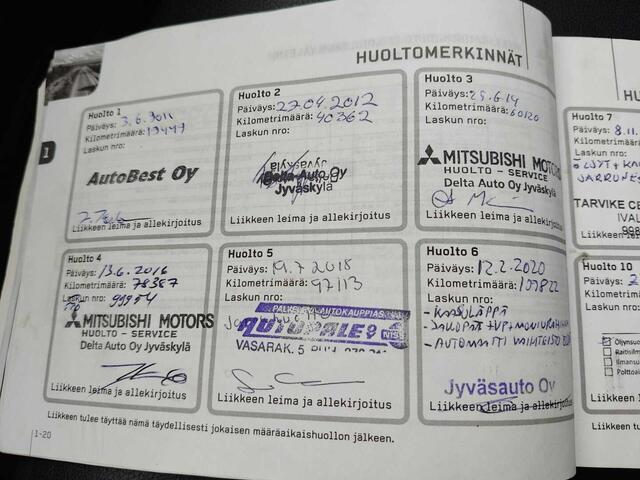 HUOLTOMERKINNÄT
Huolto 1
Päiväys: 3.6.3011
Kilometrimäärä: 13447
Laskun nro:
AutoBest Oy
Liikkeen leima ja allekirjoitus
Huolto 2
Päiväys: 27.04.2012
Kilometrimäärä: 40362
Laskun nro:
Jyväskylä
Delta Auto Oy
Jyväskylä
Liikkeen leima ja allekirjoitus
Huolto 3
Päiväys: 25.6.14
Kilometrimäärä: 60120
Laskun nro:
MITSUBISHI MOTORS
HUOLTO - SERVICE
Delta Auto Oy Jyväskylä
Liikkeen leima ja allekirjoitus
Huolto 4
Päiväys: 13.6.2016
Kilometrimäärä: 78387
Laskun nro: 99954
MITSUBISHI MOTORS
HUOLTO - SERVICE
Delta Auto Oy Jyväskylä
Liikkeen leima ja allekirjoitus
Huolto 5
Päiväys: 19.7.2018
Kilometrimäärä: 97113
PALVELEVA AUTOKAUPPIAS
AUTOPALE OY
VASARAK. 5
Liikkeen leima ja allekirjoitus
Huolto 6
Päiväys: 12.2.2020
Kilometrimäärä: 107822
Laskun nro:
Jyväsauto Oy
Liikkeen leima ja allekirjoitus
Liikkeen tulee täyttää nämä täydellisesti jokaisen määräaikaishuollon jälkeen.
1-20
1
Huolto 7
Päiväys: 8.11.
Kilometrimäärä:
Laskun nro:
TARVIKE CE
IVAL
998
Liikkeen
Huolto 10
Päiväys: 2
Kilometrim
Laskun nro:
Öljynsuo
Raitisilm
Ilmansu
Polttoai
Liikkeen le
Liikkeen tu